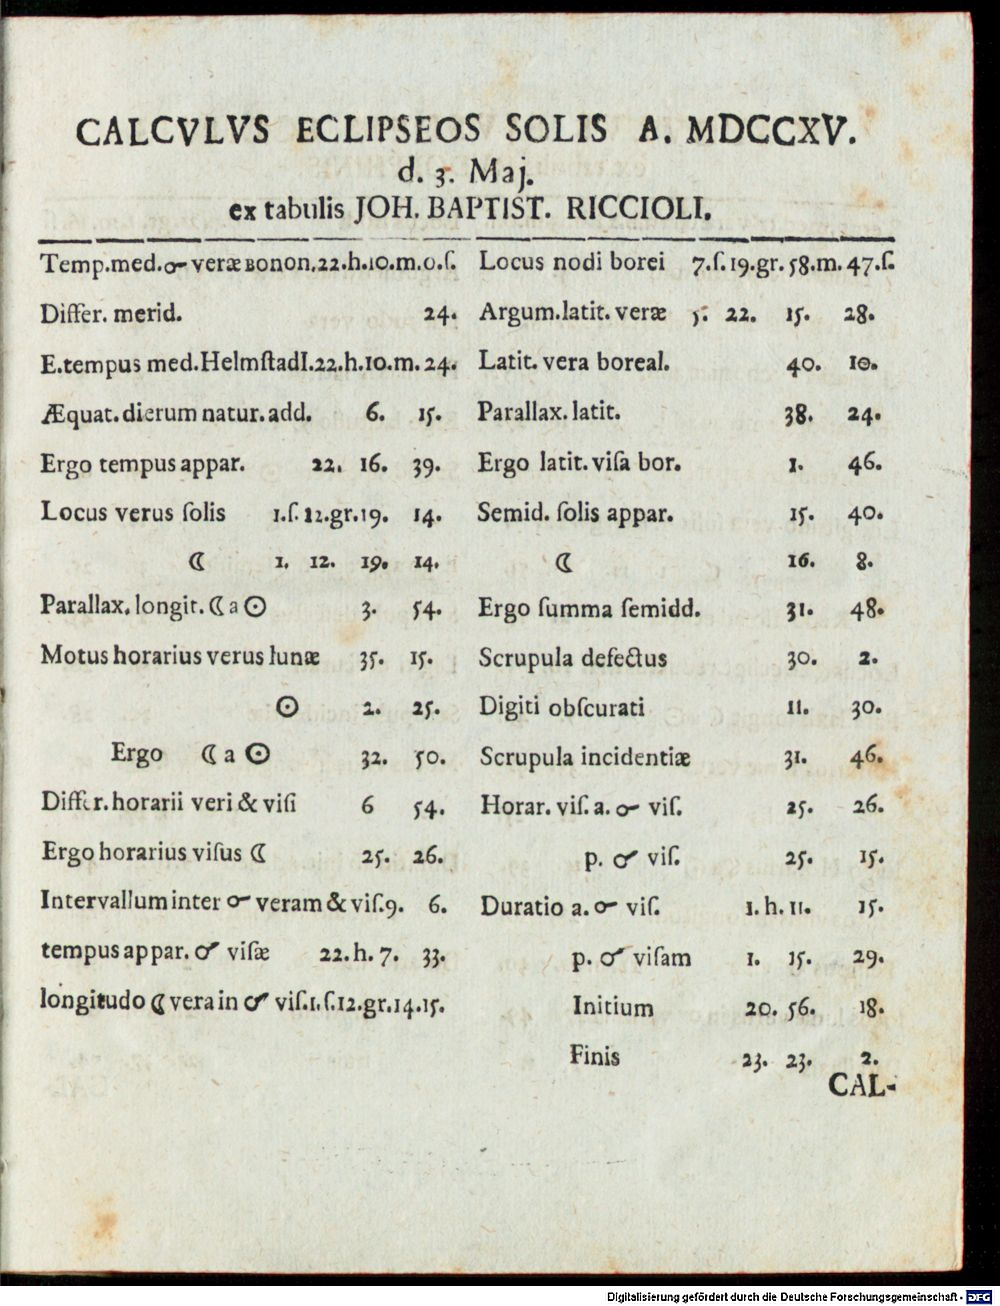 CALCVLVS ECLIPSEOS SOLIS A. MDCCXV.
d. 3. Maj.
ex tabulis JOH. BAPTIST. RICCIOLI.
Temp.med.☌ veræ BONON.22.h.10.m.0.ſ.
Differ. merid. 24.
E.tempus med.Helmſtadl.22.h.10.m.24.
Æquat.dierum natur.add. 6. 15.
Ergo tempus appar. 22. 16. 39.
Locus verus ſolis 1.ſ.12.gr.19. 14.
☾ 1. 12. 19. 14.
Parallax.longit.☾ a ☉ 3. 54.
Motus horarius verus lunæ 35. 15.
☉ 2. 25.
Ergo ☾ a ☉ 32. 50.
Differ.horarii veri & viſi 6 54.
Ergo horarius viſus ☾ 25. 26.
Intervallum inter ☌ veram & viſ.9. 6.
tempus appar. ☌ viſæ 22.h.7. 33.
longitudo ☾ vera in ☌ viſ.1.ſ.12.gr.14.15.
Locus nodi borei 7.ſ.19.gr.58.m.47.ſ.
Argum.latit.veræ 5. 22. 15. 28.
Latit. vera boreal. 40. 10.
Parallax. latit. 38. 24.
Ergo latit. viſa bor. 1. 46.
Semid. ſolis appar. 15. 40.
☾ 16. 8.
Ergo ſumma ſemidd. 31. 48.
Scrupula defectus 30. 2.
Digiti obſcurati 11. 30.
Scrupula incidentiæ 31. 46.
Horar. viſ. a. ☌ viſ. 25. 26.
p. ☌ viſ. 25. 15.
Duratio a. ☌ viſ. 1.h.11. 15.
p. ☌ viſam 1. 15. 29.
Initium 20. 56. 18.
Finis 23. 23. 2.
CAL-
Digitalisierung gefördert durch die Deutsche Forschungsgemeinschaft - DFG